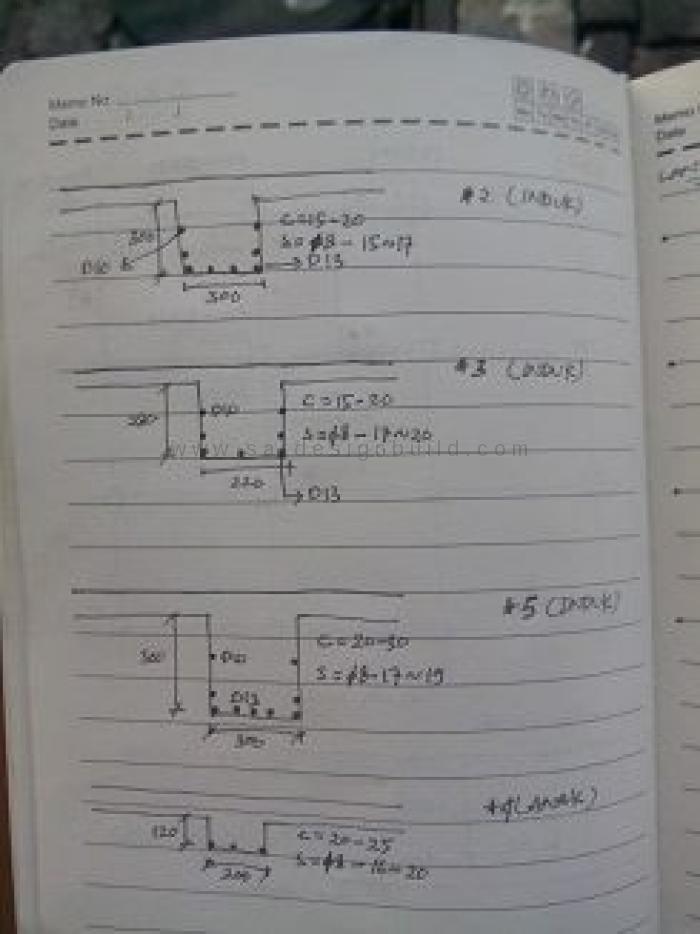 Memo No.
Date
#2 (INDUK)
C=15-20
300
S=φ8-15~17
D10
D13
300
#3 (INDUK)
D10
C=15-20
S=φ8-17~20
www.sandesignbuild.com
220
D13
#5 (INDUK)
C=20-30
300
D10
S=φ8-17~19
D13
300
120
C=20-25
200
S=φ8-16~20
Memo
Date